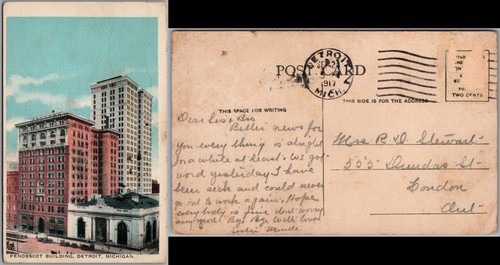 PENOBSCOT BUILDING, DETROIT, MICHIGAN.
POST CARD
DETROIT
1917
MICH.
TWO CENTS
THIS SPACE FOR WRITING
THIS SIDE IS FOR THE ADDRESS
Dear Sis &
Better news for
you every thing is alright
for a while at least. We got
word yesterday I have
been sick and could never
go to work again. Hope
everybody is fine dont worry
anymore. Bye Bye Will
Mrs. R. D. Stewart
555 Dundas St
London
Ont